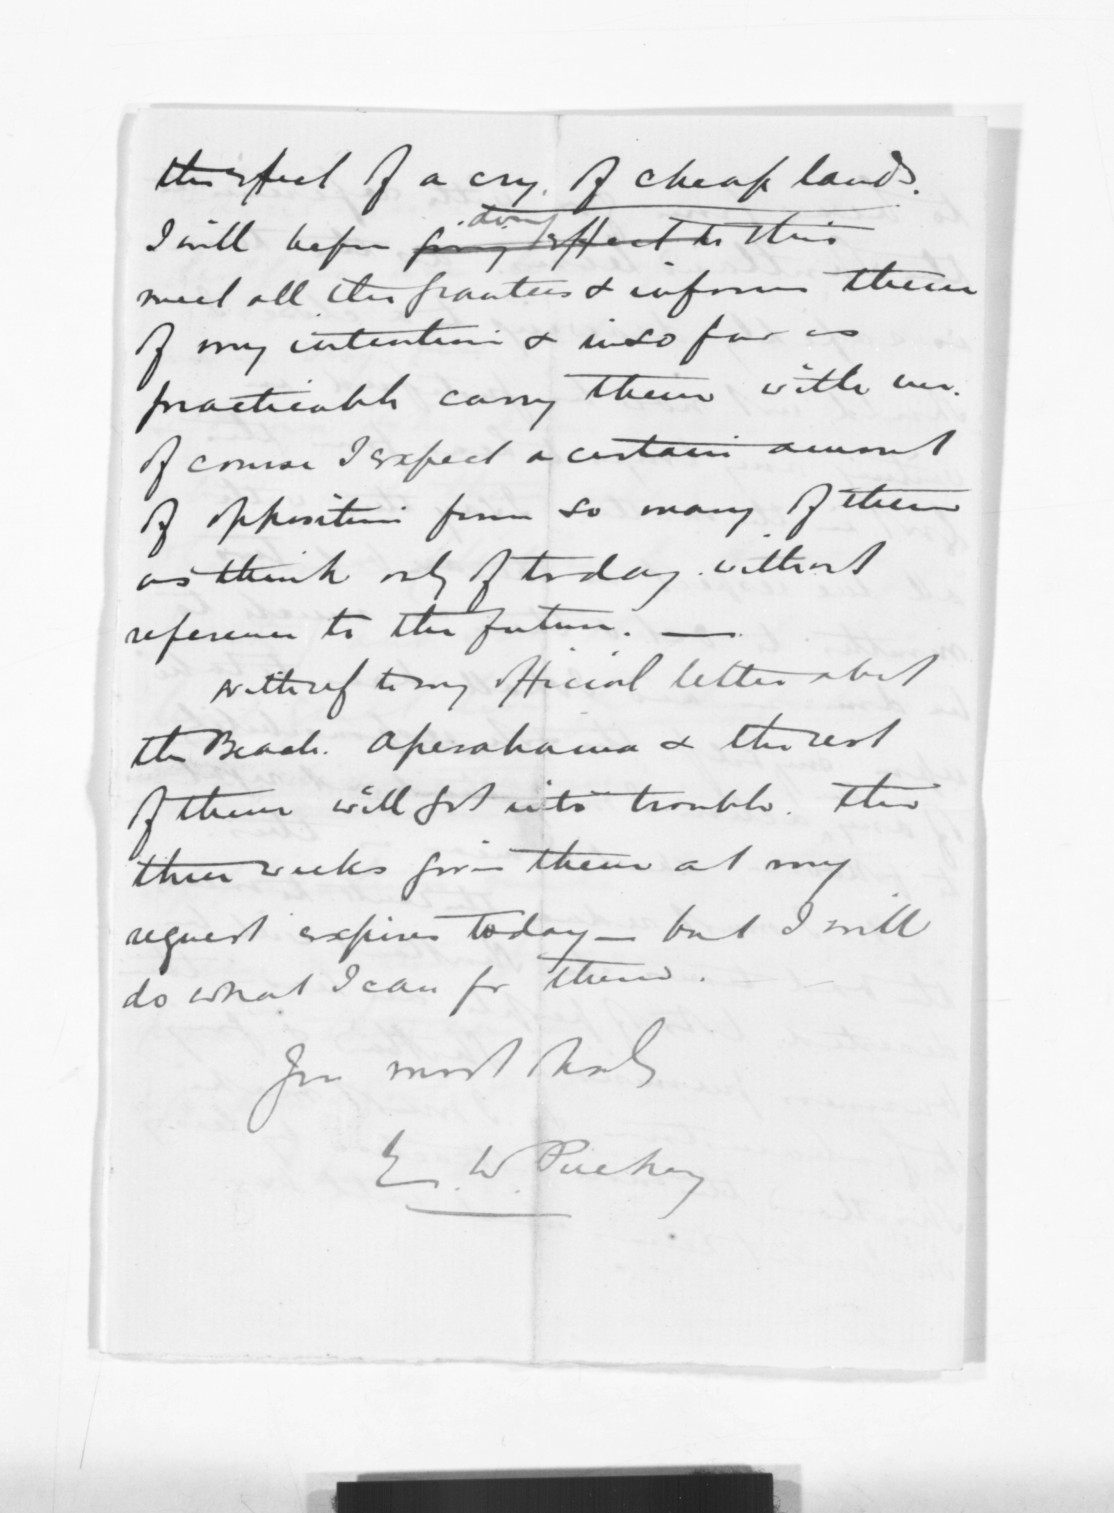 the effect of a cry of cheap lands.
I will before giving doing effect to this
meet all the grantees & inform them
of my intention & in so far as
practicable carry them with me.
Of course I expect a certain amount
of opposition from so many of them
as think only of today without
reference to the future. —
With ref to my official letter about
the Beach. Aperahama & the rest
of them will get into trouble. The
three weeks given them at my
request expires today — but I will
do what I can for them.
most truly
E. W. Puckey